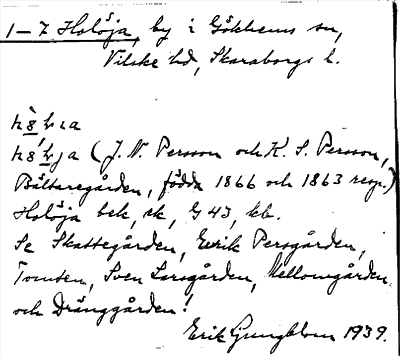 1-7 Holöja, by i Gökhems sn,
Vilske hd, Skaraborgs l.
(J. N. Persson och K. S. Persson,
Bältaregården, födda 1866 och 1863 resp.)
Holöja bek, ak, G 43, kb.
Se Skattegården, Everik Persgården,
Tomten, Sven Larsgården, Mellomgården
och Dränggården!
Erik Ljungblom 1939.